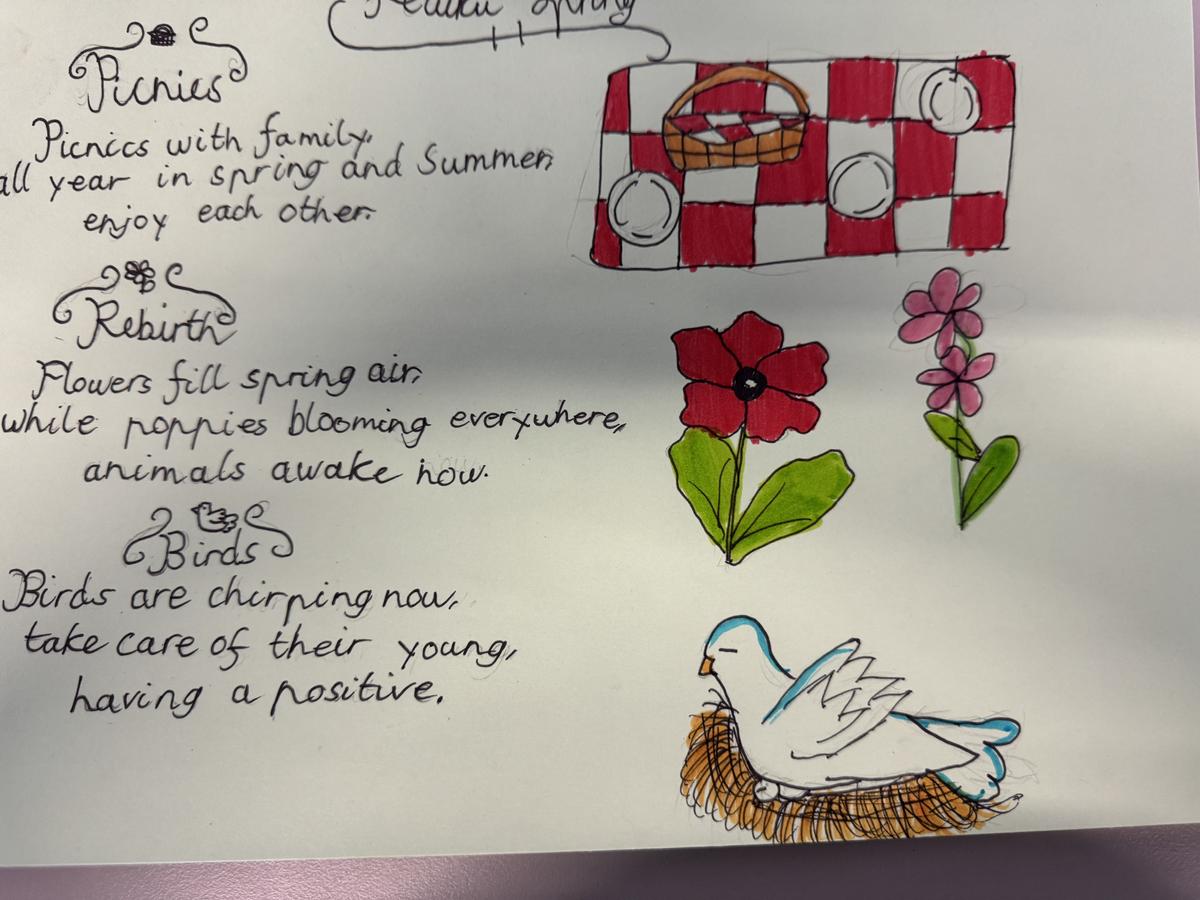 Haiku Spring
Picnics
Picnics with family,
all year in spring and Summer,
enjoy each other.
Rebirth
Flowers fill spring air,
while poppies blooming everywhere,
animals awake now.
Birds
Birds are chirping now,
take care of their young,
having a positive.